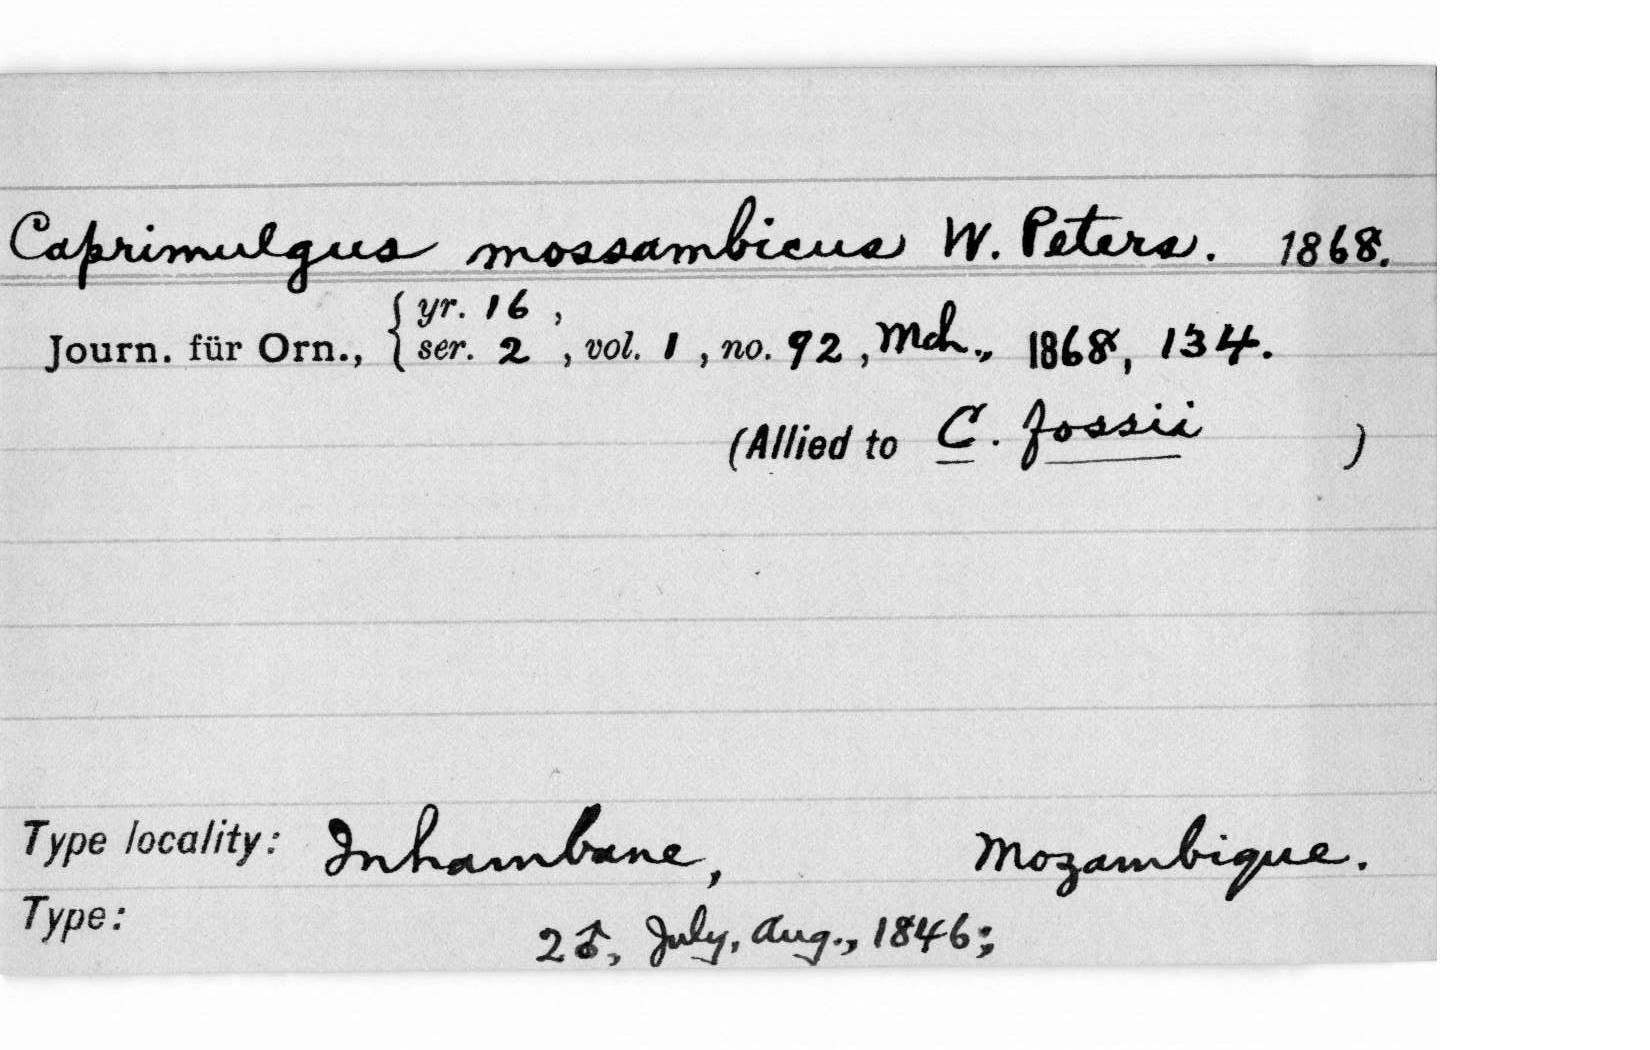 Caprimulgus mossambicus W. Peters. 1868.
Journ. für Orn., { yr. 16 ,
ser. 2 , vol. 1 , no. 92 , Mch., 1868, 134.
(Allied to C. fossii )
Type locality: Inhambane, Mozambique.
Type:
2 ♂, July, Aug., 1846;